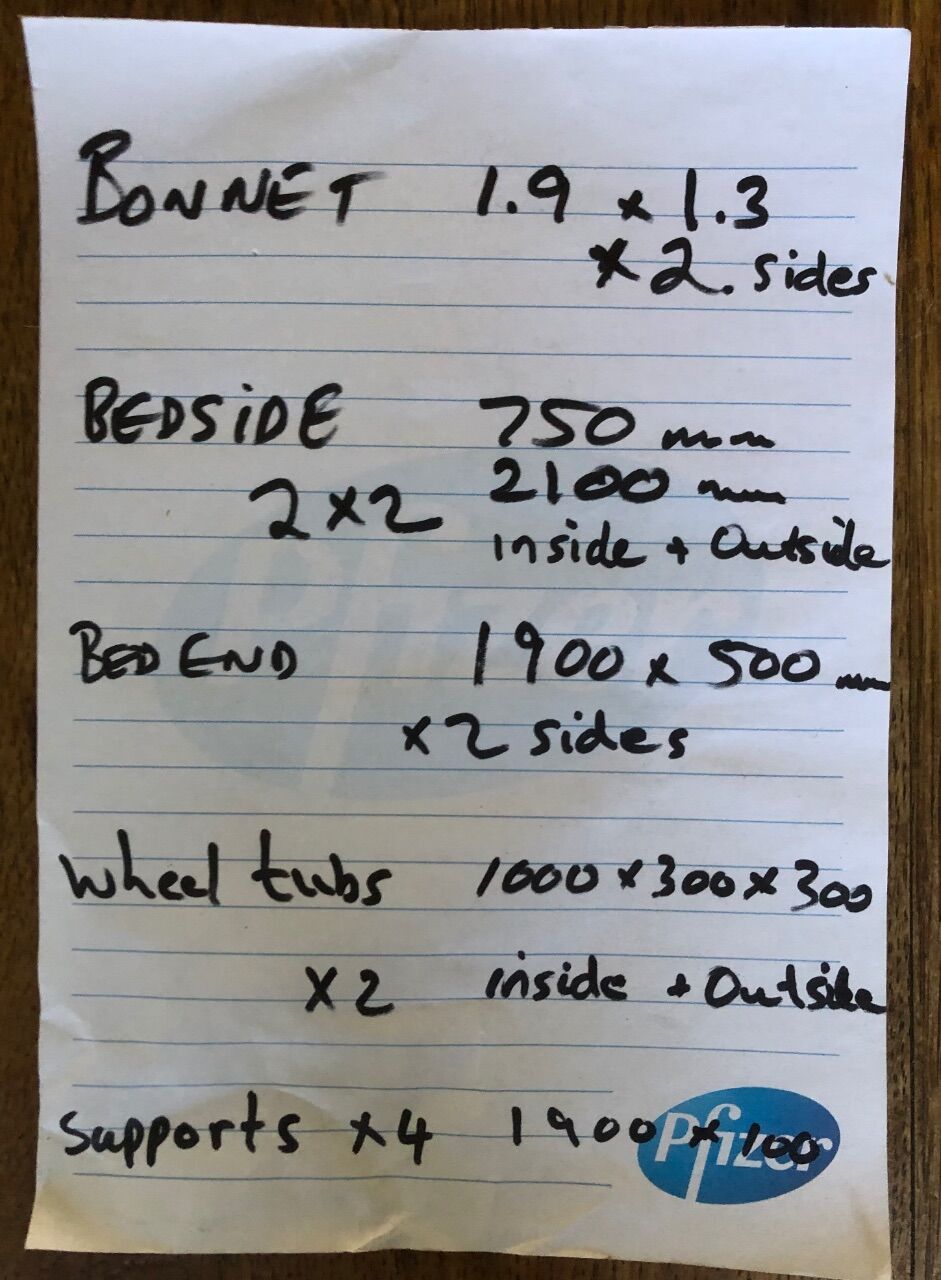 BONNET 1.9 x 1.3
x 2. sides
BEDSiDE 750 mm
2 x 2 2100 mm
inside + Outside
BED END 1900 x 500 mm
x 2 sides
Wheel tubs 1000 x 300 x 300
x 2 inside + Outside
Supports x 4 1900 x 100
Pfizer